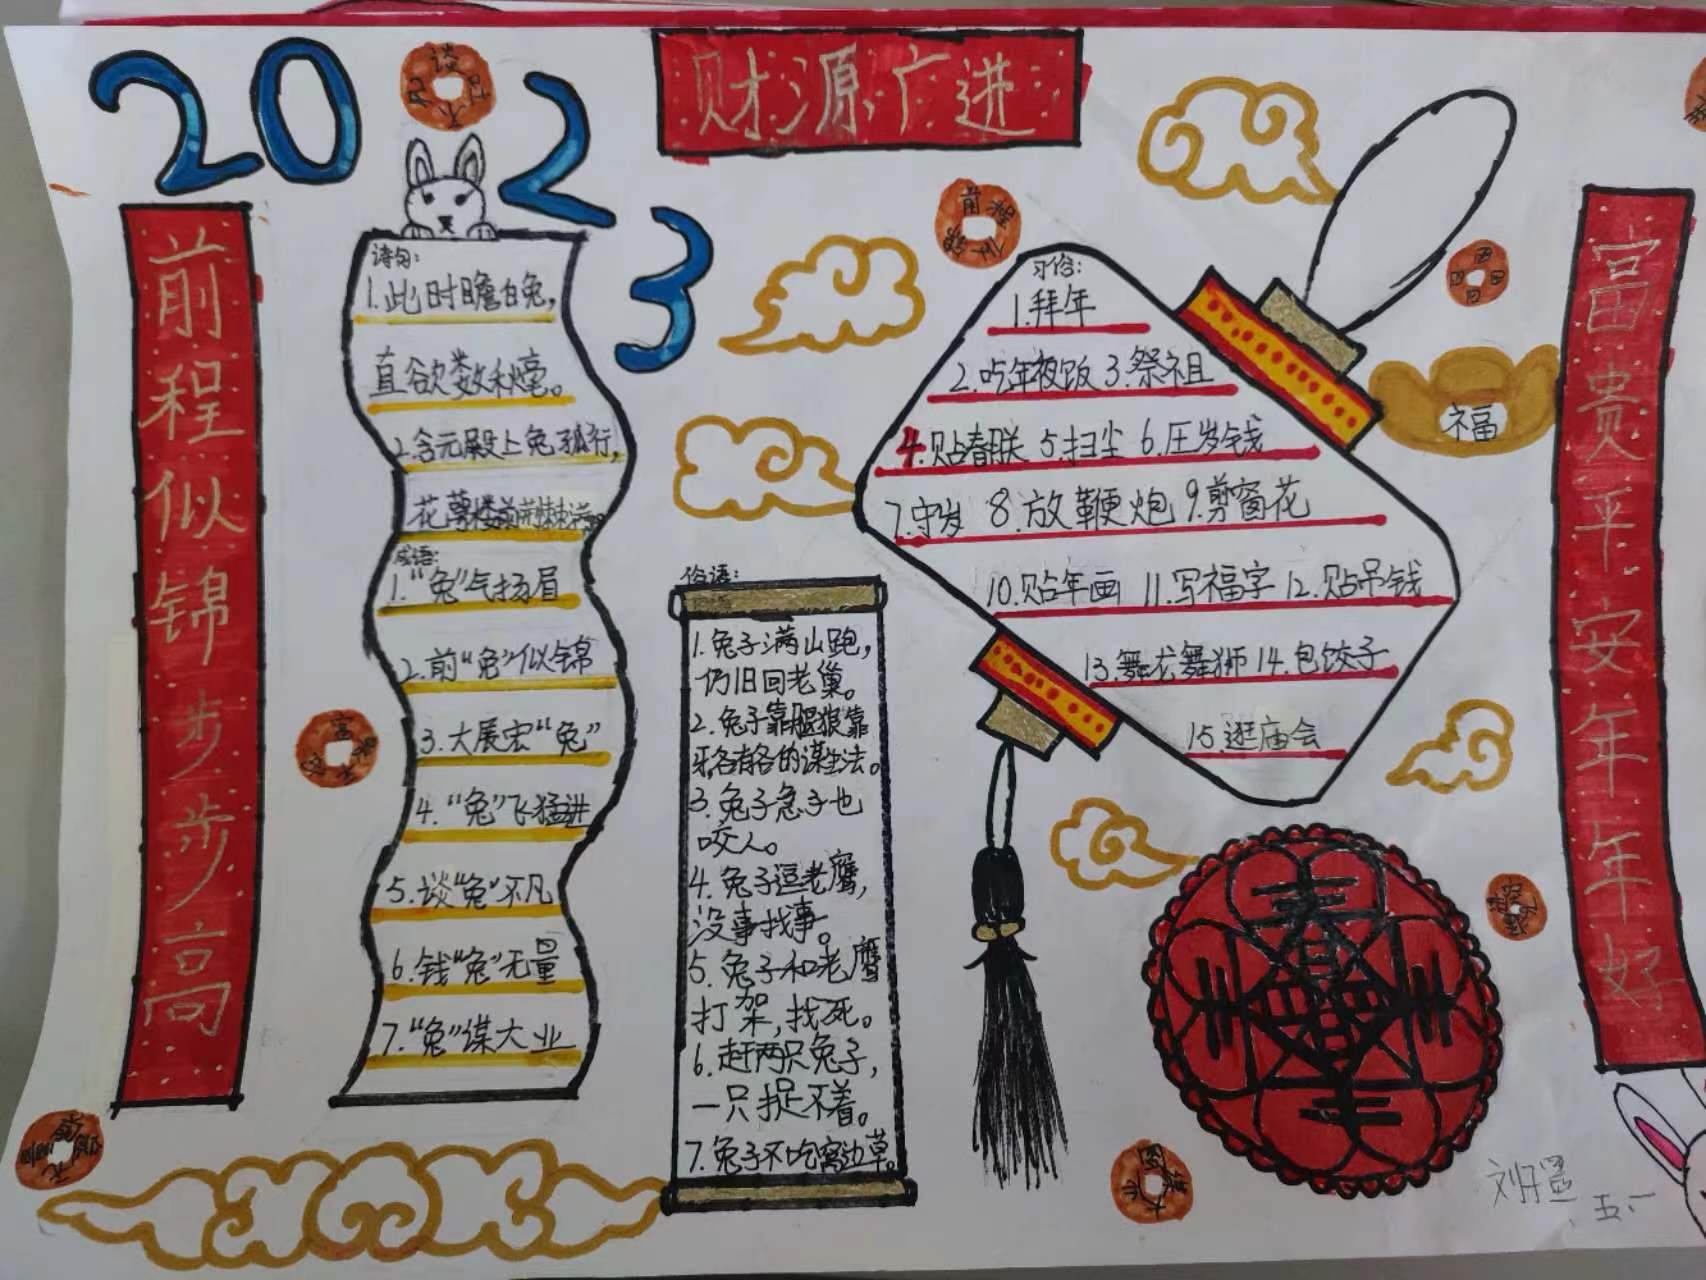 2023
财源广进
前程似锦步步高
富贵平安年年好
诗句:
1.此时瞻白兔,
直欲数秋毫。
2.含元殿上兔孤行,
花萼楼前荆棘满。
成语:
1.“兔”气扬眉
2.前“兔”似锦
3.大展宏“兔”
4.“兔”飞猛进
5.谈“兔”不凡
6.钱“兔”无量
7.“兔”谋大业
俗语:
1.兔子满山跑,
仍旧回老巢。
2.兔子靠腿狼靠
牙,各有各的谋生法。
3.兔子急了也
咬人。
4.兔子逗老鹰,
没事找事。
5.兔子和老鹰
打架,找死。
6.赶两只兔子,
一只捉不着。
7.兔子不吃窝边草。
习俗:
1.拜年
2.吃年夜饭 3.祭祖
4.贴春联 5.扫尘 6.压岁钱
7.守岁 8.放鞭炮 9.剪窗花
10.贴年画 11.写福字 12.贴吊钱
13.舞龙舞狮 14.包饺子
15.逛庙会
福
前程似锦
春
五、一